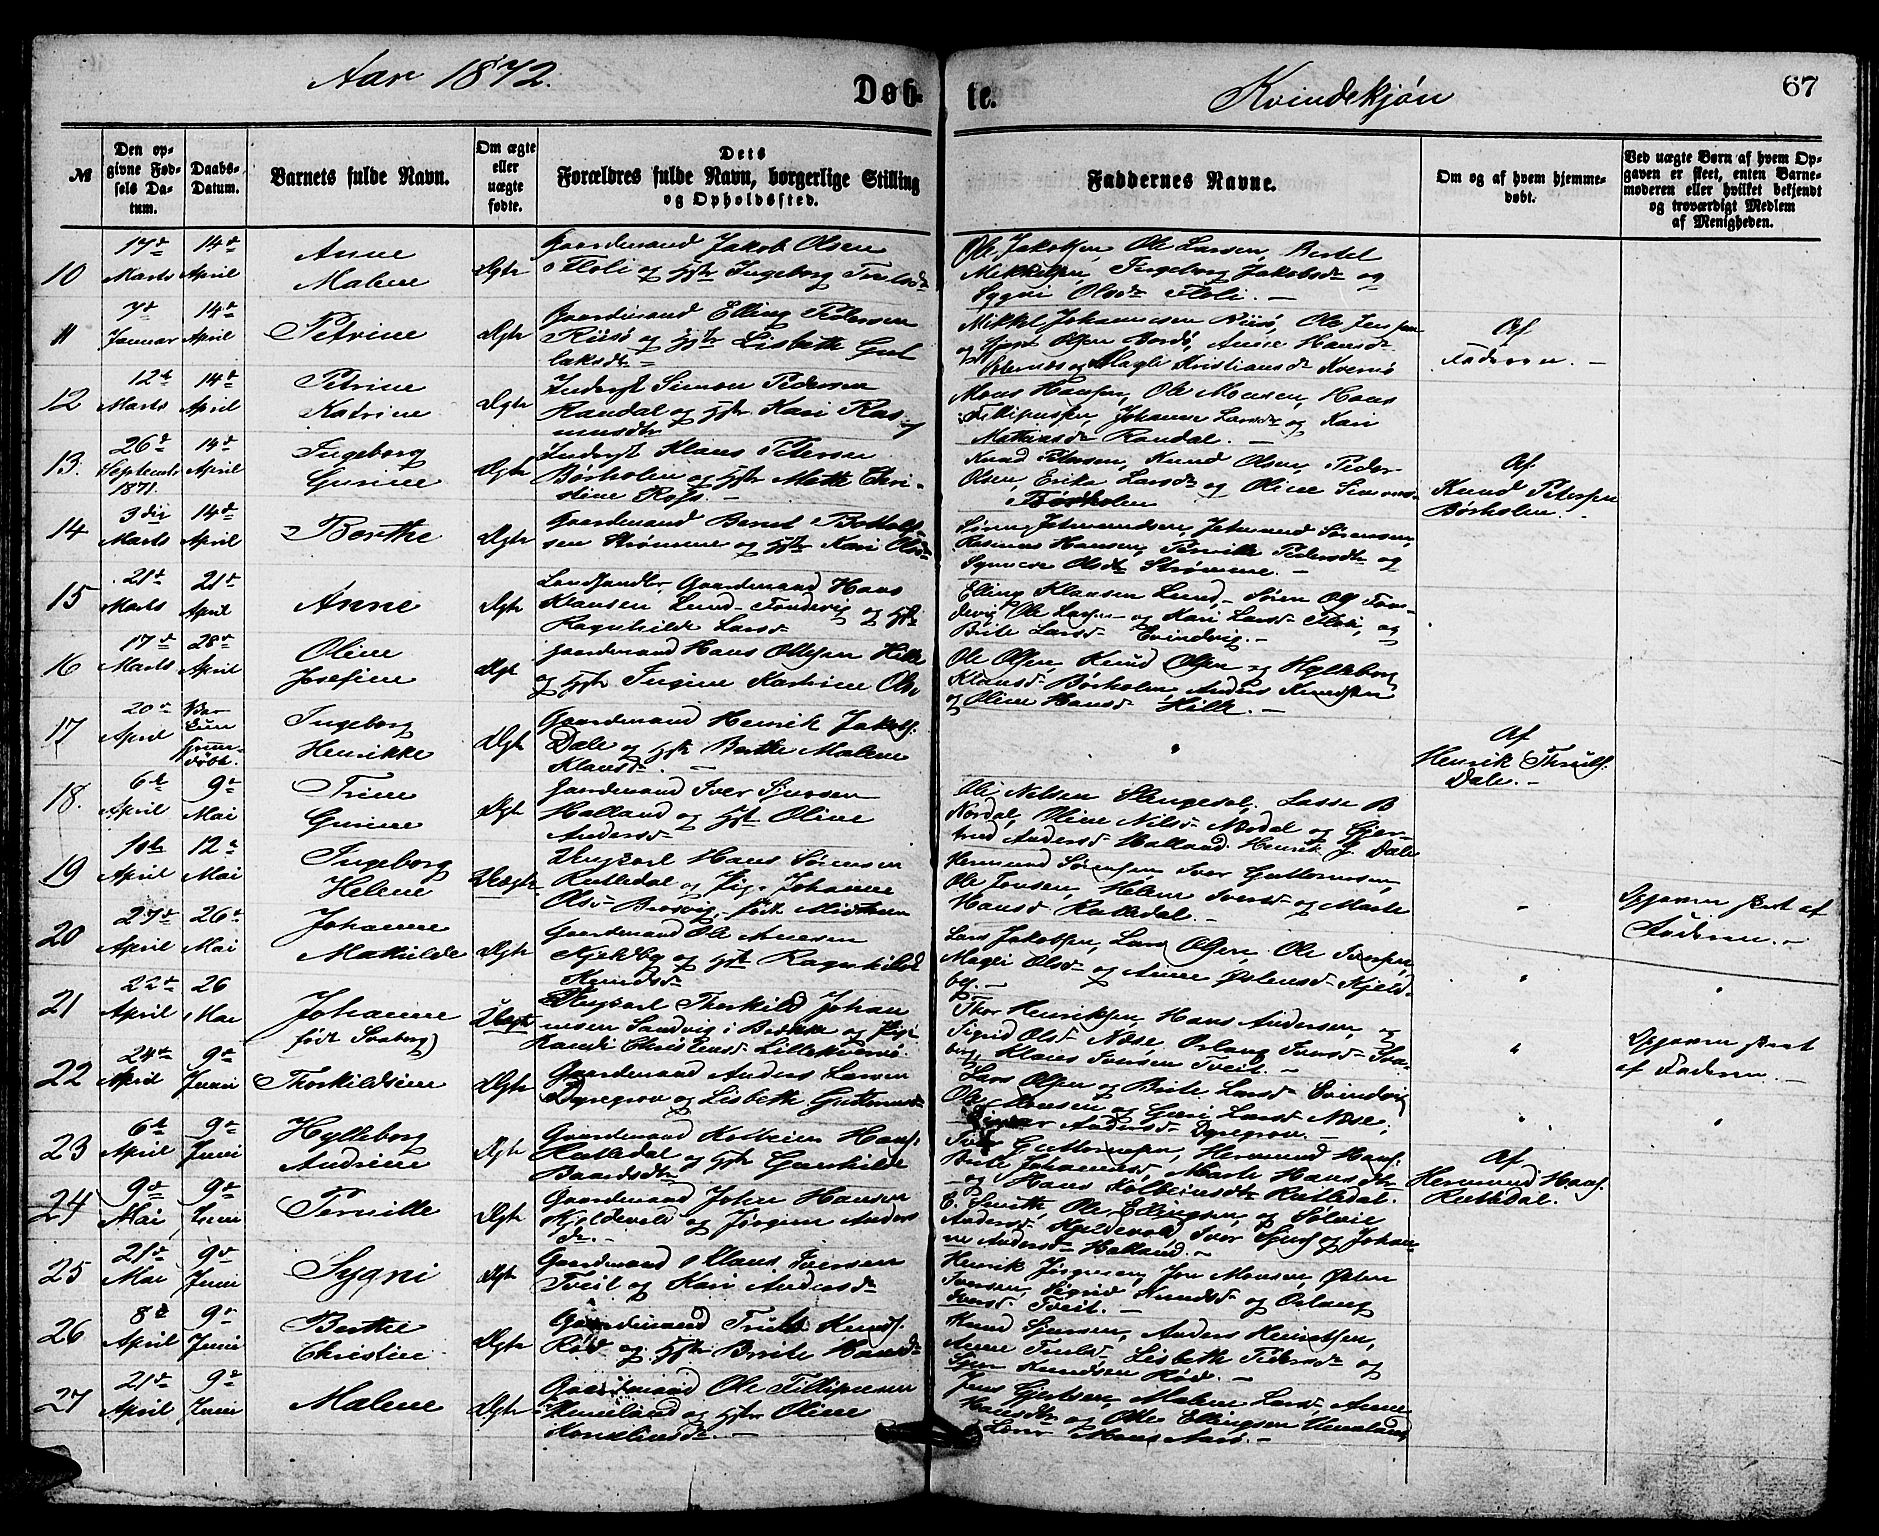 Aar 1872.
Døb- te.
Kvindekjøn
67
№
Den op-
givne Fød-
sels Da-
tum.
Daabs-
Datum.
Barnets fulde Navn.
Om ægte
eller
uægte
fødte.
Dets
Forældres fulde Navn, borgerlige Stilling
og Opholdssted.
Faddernes Navne.
Om og af hvem hjemme-
døbt.
Ved uægte Børn af hvem Op-
gaven er skeet, enten Barne-
moderen eller hvilket bekjendt
og troværdigt Medlem
af Menigheden.
10
17de
Marts
14de
April
Anne
Malene
Ægte
Gaardmand Jakob Olsen
Floli og Hstr Ingeborg Trulsdr
Ole Jakobsen, Ole Larsen, Bertel
Mikkelsen, Ingeborg Jakobsdr og
Sygni Olsdr Floli. —
11
7de
Januar
14de
April
Petrine
Ægte
Gaardmand Elling Pedersen
Risø og Hstr Lisbeth Gut
laksdr —
Mikkel Johannesen Risø, Ole Jensen
og Olsen Bordø, Anne Hansdr
og Magli Kristiansdr Kvernø
Af
Faderen. —
12
12te
Marts
14de
April
Petrine
Katrine
Ægte
Inderst Simon Pedersen
Randal og Hstr Kari Ras-
musdtr
Mons Hansen, Ole Monsen, Hans
Johanne Larsdr og Kari
Mathiasdr Randal. —
13.
26de
Septemb.
1871.
14de
April
Ingeborg
Gurine
Ægte
Inderst Klaus Petersen
Børholen og Hstr Mette Chri-
stine —
Knud Petersen, Knud Olsen, Peder
Olsen, Erike Larsdr og Oline Simons-
Børholen
Af
Knud Petersen
Børholen. —
14
3die
Marts
14de
April
Berthe
Ægte
Gaardmand Bernt Botholf
sen Strømme og Hstr Kari Olsdr
Søren Jetmundsen, Jetmund Sørensen,
Rasmus Hansen, Pernille Pedersdtr og
Synneve Olsdtr Strømme. —
15
21de
Marts
21de
April
Anne
Ægte
Landhandler, Gaardmand Hans
Klausen Lund Fondevig og Hstr
Ragnhilde Larsdr
Elling Klausen Lund, Søren Ols Fon-
devig, Ole Larsen og Kari Larsdr Floli, og
Brite Larsdr Evindvig. —
16
17de
Marts
28de
April
Oline
Josefine
Ægt
Gaardmand Hans Ottesen Hille
og Hstr Ingine Kathrine Ols
Ole Olsen, Knud Olsen og Hylleborg
Klausdr Børholen, Anders Knudsen
og Oline Hansdr Hille. —
17
20de
April
Bar
kun
hjem-
døbt.
Ingeborg
Henrikke
Ægte
Gaardmand Henrik Jakobs.
Dale og Hstr Berthe Malene
Klausdr. —
"
Af
Henrik Thruls.
Dale. —
18.
6te
April
9de
Mai
Trine
Gurine
Ægte
Gaardmand Iver Sjursen
Halland og Hstr Oline
Andersdr
Ole Nilsen Slengesol. Lasse B
Nordal, Oline Nilsdr Nordal og Gjer-
trud Andersdr Halland. Henrik J. Dale
19
10de
April
12te
Mai
Ingeborg
Helene
Uægte
Ungkarl Hans Sørensen
Rutledal og Pige Johanne
Olsdr født Midtun
Hermund Sørensen, Iver Guttormsen,
Ole Jonsen, Helene Iversdr og Marte
Hansdr Rutledal. —
"
Opgaven skeet af
Faderen. —
20
27de
April
26de
Mai
Johanne
Mathilde
Ægte
Gaardmand Ole Arnesen
Kjeldby og Hstr Ragnhilde
Knudsdr
Lars Jakobsen, Lars Olsen, Ole Iversen,
Magli Olsdr og Anne Østensdr Kjeld-
by. —
"
"
21
22de
April
26
Mai
Johanne
født Svaberg)
Uægte
Ungkarl Thorkild Johan
nesen Sandvig i Brekke og Pige
Randi Christensdr Lillekvernø
Thor Henriksen, Hans Andersen, og
Sigrid Olsdr Næse, Orlaug Iversdr Sva-
berg, Klaus Iversen Tveit. —
"
Opgaven skeet
af Faderen. —
22
24de
April
9de
Juni
Thorkildsine
Ægte
Gaardmand Anders Larsen
Dyregrov og Lisbeth Guttormsdr
Lars Olsen og Brite Larsdr Evindvig
Ole Monsen og Guri Larsdr Næse,
Andersdr Dyregrov. —
"
"
23
6te
April
9de
Juni
Hylleborg
Andrine
Ægte
Gaardmand Kolbein Hans.
Rutledal og Hstr Gunhilde
Baardsdtr
Iver Guttormsen, Hermund Hans.
Brite Johannesdr, Marte Hansdtr
og Hans Kolbeinsdtr Rutledal.
Af
Hermund Hans.
Rutledal.
24
9de
Mai,
9de
Juni
Pernille
Ægte
Gaardmand John Hansen
Kjeldevold og Jørgine Anders
dr. —
E. Smith, Ole Ellingsen, og Sølvie
Andersdr Kjeldevold, Iver Sjurs. og Johan-
ne Andersdr Halland. —
25
21de
Mai
9de
Juni
Sygni
Ægte
Gaardmand Klaus Iversen
Tveit og Kari Andersdr
Henrik Jørgensen, Jon Monsen, Østen
Iversen, Sigrid Knudsdr og Orlaug
Iversdr Tveit. —
26
8de
April
9de
Juni
Berthe
Christine
Ægte
Gaardmand Truls Knuds.
Rød og Hstr Brite Hansdr
Knud Sjursen, Anders Henriksen,
Anne Trulsdr, Lisbeth Pedersdr og
Sjur Knudsen Rød. —
27
21de
April
9de
Juni
Malene
Ægte
Gaardmand Ole Fillipusen
Hauland og Hstr Oline
—
Jens Gjertsen, Malene Larsdr, Anne
Hansdtr og Otte Ellingsen
Mons Aarø. —